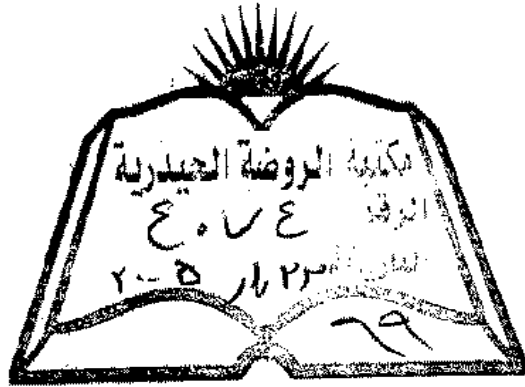 مكتبة الروضة الحيدرية
الرقم ٤٠٧٤
التاريخ
٦٩